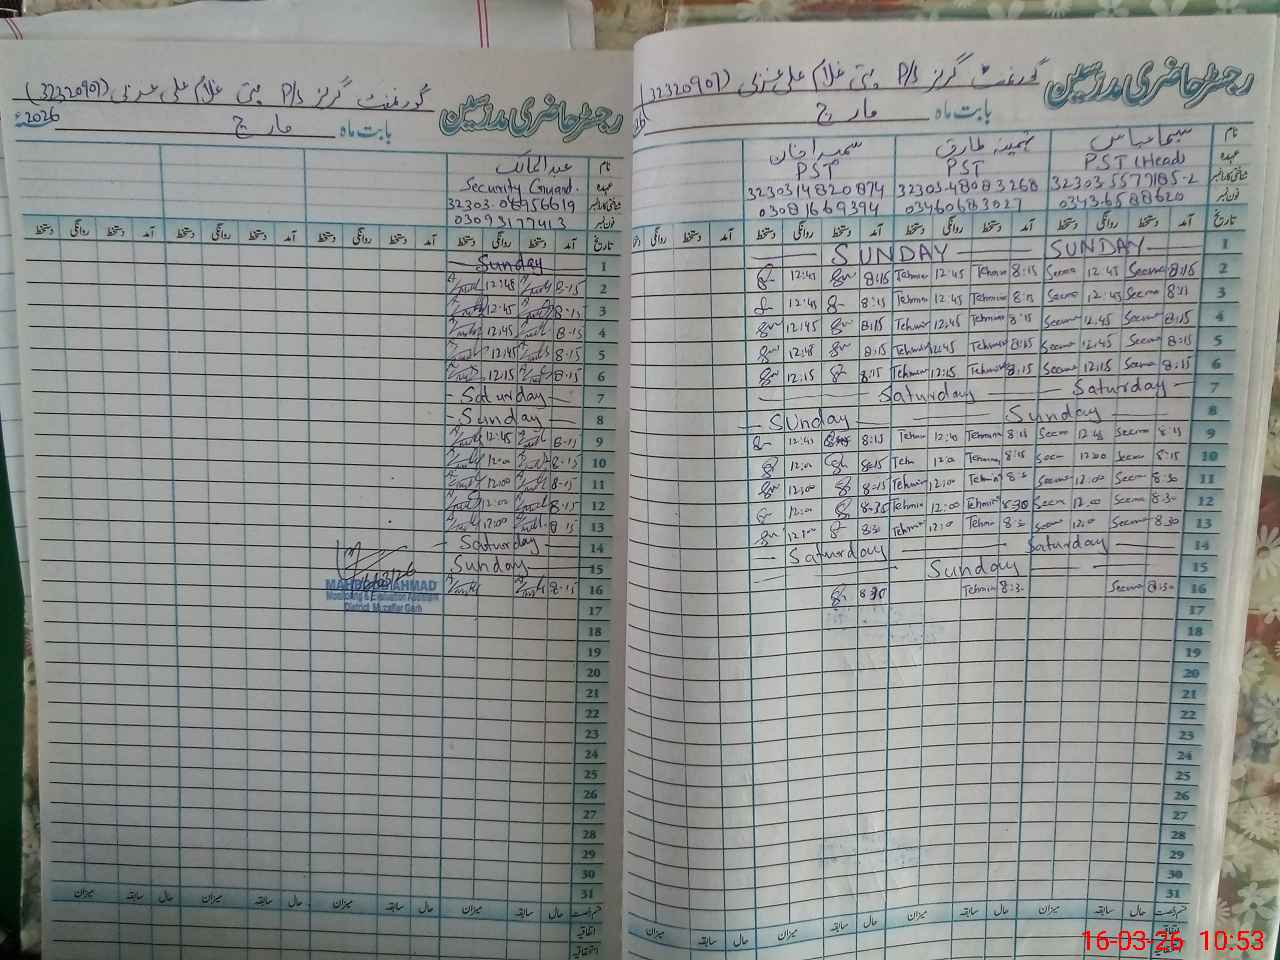 رجسٹر حاضری مدرسین
گورنمنٹ گرلز P/s بستی غلام علی غزنی (32320907)
بابت ماہ مارچ
نام سیما عباس ثمینہ طارق سمیرا خان
عہدہ PST (Head) PST PST
32303-5577185-2 32303-48083268 3230314820874
فون نمبر 03436588620 03460683027 03081669394
تاریخ آمد دستخط روانگی دستخط آمد دستخط روانگی دستخط آمد دستخط روانگی دستخط آمد دستخط روانگی
1 SUNDAY SUNDAY
2 8:15 Seema 12:45 Seema 8:15 Tehmin 12:45 Tehmin 8:15 12:45
3 8:15 Seema 12:45 Seema 8:15 Tehmin 12:45 Tehmin 8:15 12:45
4 8:15 Seema 12:45 Seema 8:15 Tehmin 12:45 Tehmin 8:15 12:45
5 8:15 Seema 12:45 Seema 8:15 Tehmin 12:45 Tehmin 8:15 12:45
6 8:15 Seema 12:15 Seema 8:15 Tehmin 12:15 Tehmin 8:15 12:15
7 Saturday Saturday
8 Sunday Sunday
9 8:15 Seema 12:45 Seem 8:15 Tehmin 12:45 Tehmin 8:15 12:45
10 8:15 Seema 12:00 Seem 8:15 Tehmin 12:00 Tehm 8:15 12:00
11 8:30 Seem 12:00 Seema Tehmin 12:00 Tehmin 8:15 12:00
12 8:30 Seema 12:00 Seem 8:30 Tehmin 12:00 Tehmin 8:35 12:00
13 8:30 Seema 12:0 Seema 8:3 Tehm 12:0 Tehmin 8:30 12:00
14 Saturday Saturday
15 Sunday
16 8:30 Seema 8:30 Tehmin 8:30
17
18
19
20
21
22
23
24
25
26
27
28
29
30
31
حال سابقہ میزان حال سابقہ میزان حال سابقہ میزان حال سابقہ
اتفاقیہ
رجسٹر حاضری مدرسین
گورنمنٹ گرلز P/s بستی غلام علی غزنی (32320907)
بابت ماہ مارچ 2026ء
نام عبدالمالک
عہدہ Security Guard.
32303-08956619
فون نمبر 03093177413
تاریخ آمد دستخط روانگی دستخط آمد دستخط روانگی دستخط آمد دستخط روانگی دستخط آمد دستخط روانگی دستخط
1 Sunday
2 8-15 12:45
3 8-15 12:45
4 8-15 12:45
5 8-15 12:45
6 8-15 12:15
7 Saturday
8 Sunday
9 8-15 12:45
10 8-15 12:00
11 8-15 12:00
12 8-15 12:00
13 8-15 12:00
14 Saturday
15 Sunday
16 8-15
AHMAD
Monitoring & Evaluation Assistant
District Muzaffar Garh
17
18
19
20
21
22
23
24
25
26
27
28
29
30
31
حال سابقہ میزان حال سابقہ میزان حال سابقہ میزان حال سابقہ میزان
اتفاقیہ
16-03-26 10:53